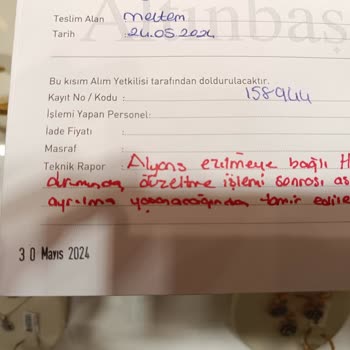 Altınbaş
Teslim Alan : meltem
Tarih : 24.05.2024
Bu kısım Alım Yetkilisi tarafından doldurulacaktır.
Kayıt No / Kodu : 158944
İşlemi Yapan Personel:
İade Fiyatı :
Masraf :
Teknik Rapor : Alyans ezilmeye bağlı H
durumunda, düzeltme işlemi sonrası as
ayrılma yaşanacağından tamir edile
30 Mayıs 2024